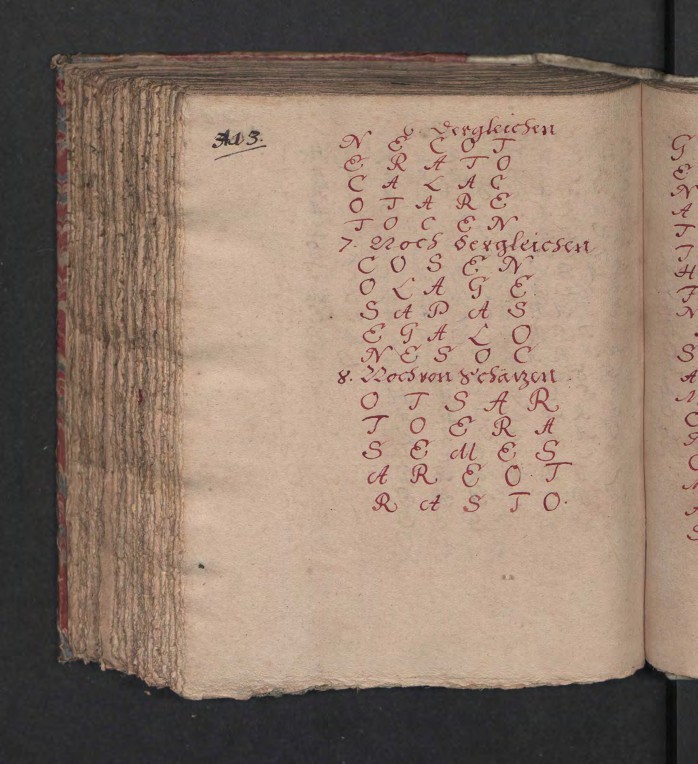 Dergleichen
N E C O T
E R A T O
C A L A C
O T A R E
T O C E N
7. Noch Dergleichen
C O S E N
O L A G E
S A P A S
E G A L O
N E S O C
8. Noch von Schäzen
O T S A R
T O E R A
S E M E S
A R E O T
R A S T O.
G
E
N
A
T
I
H
I
N
S
A